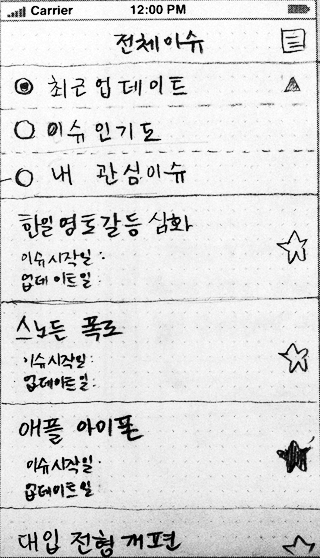 Carrier 12:00 PM
전체이슈
최근 업데이트
이슈 인기도
내 관심이슈
한일 영토갈등 심화
이슈시작일 :
업데이트일 :
스노든 폭로
이슈시작일 :
업데이트일 :
애플 아이폰
이슈시작일 :
업데이트일 :
대입 전형 개편